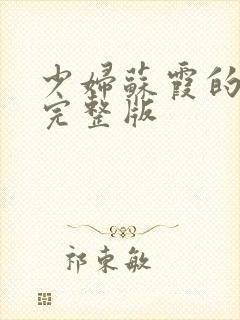 少婦蘇霞的
完整版
祁東敏